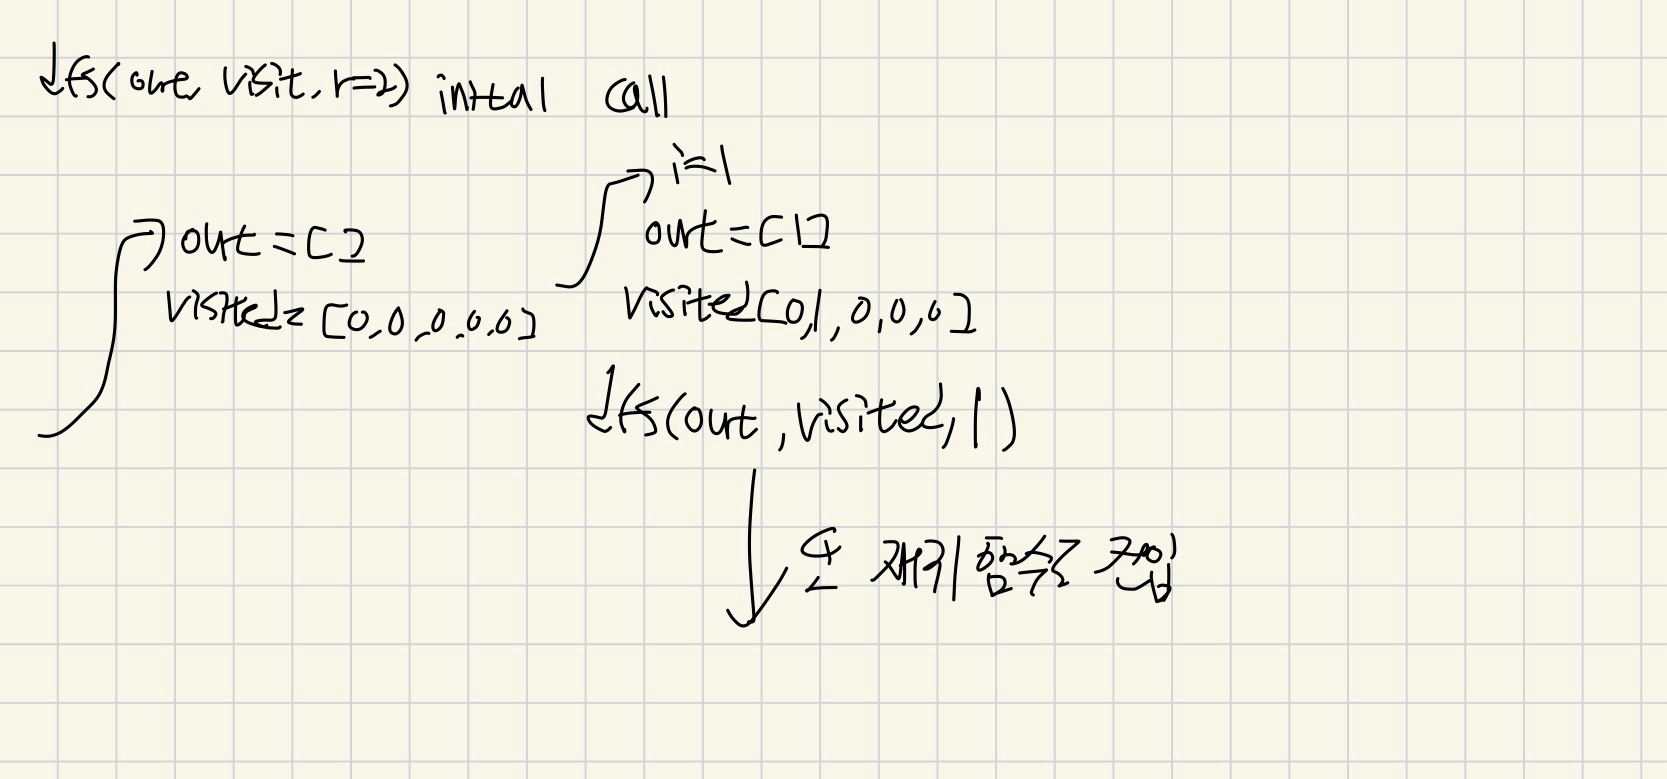 dfs(out, visit, r=2) initial call
i=1
out=[]
out=[1]
visited=[0,0,0,0,0]
visited[0,1,0,0,0]
dfs(out,visited,1)
재귀 함수로 진입